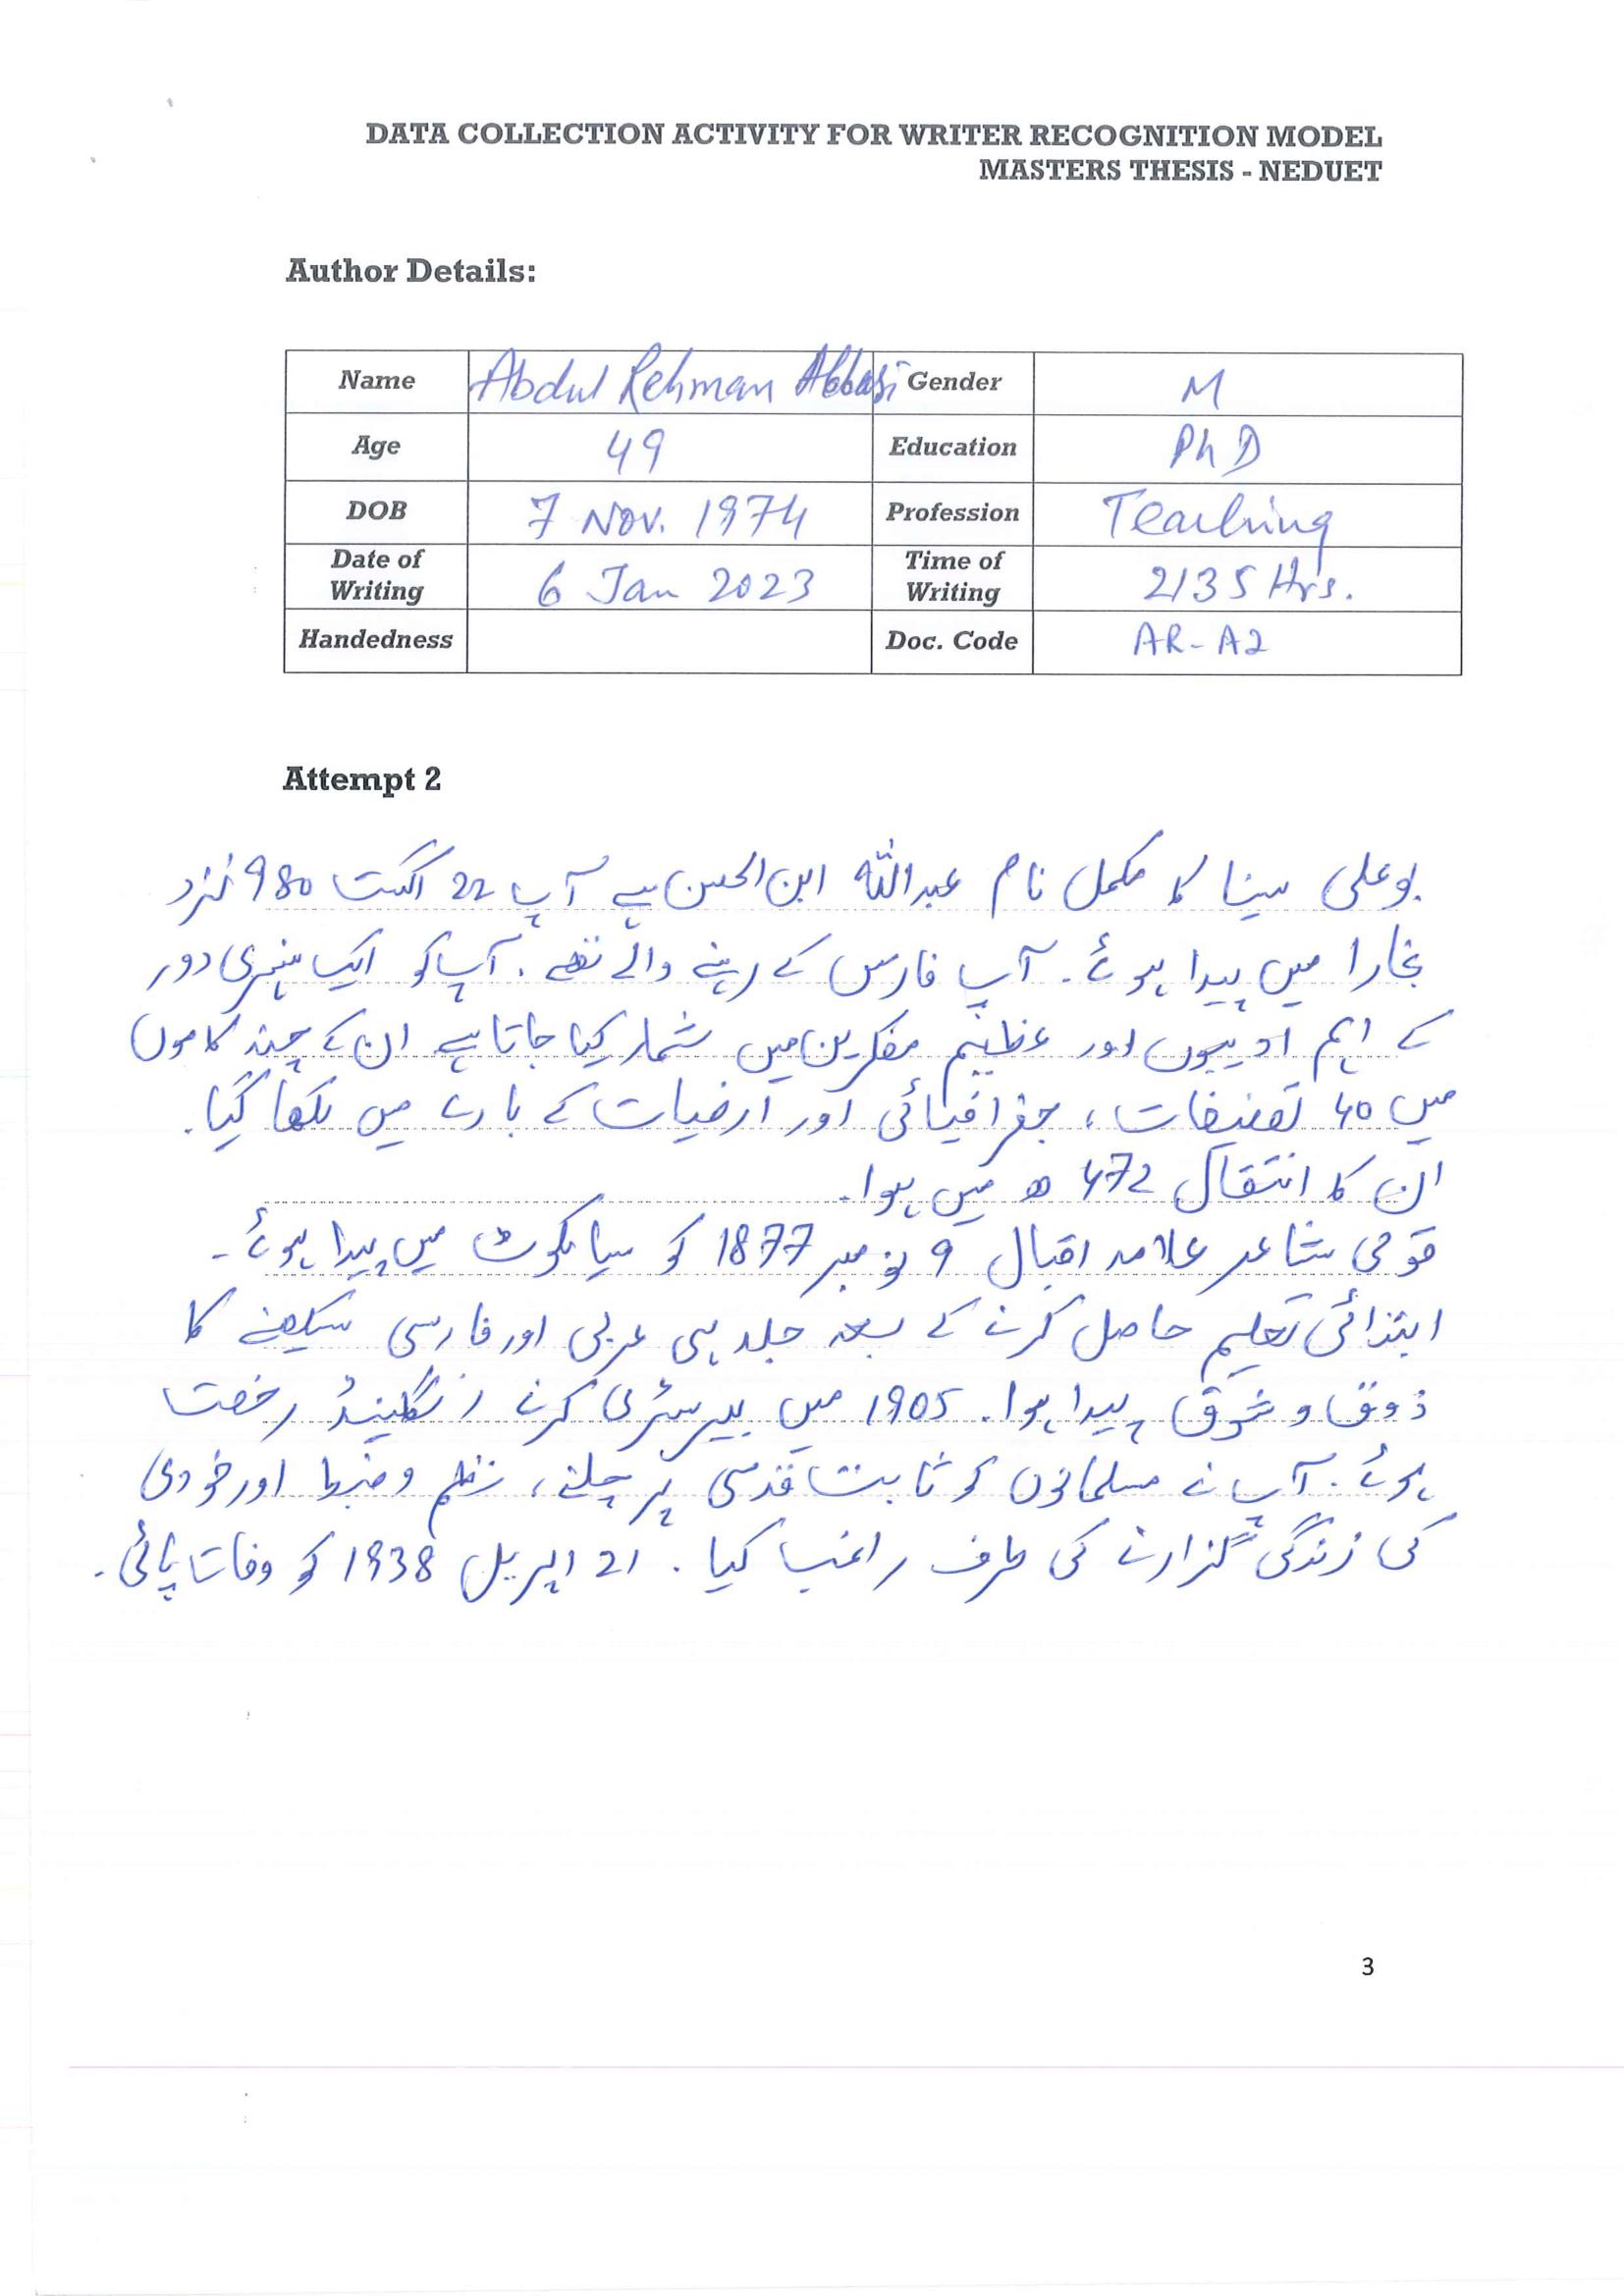 DATA COLLECTION ACTIVITY FOR WRITER RECOGNITION MODEL
MASTERS THESIS - NEDUET
Author Details:
Name Abdul Rehman Abbasi Gender M
Age 49 Education PhD
DOB 7 Nov. 1974 Profession Teaching
Date of Writing 6 Jan 2023 Time of Writing 2135 Hrs.
Handedness Doc. Code AR-A2
Attempt 2
بوعلی سینا کا مکمل نام عبداللہ ابن الحسن ہے آپ 22 اگست 980 نزد
بخارا میں پیدا ہوئے۔ آپ فارس کے رہنے والے تھے۔ آپ کو ایک سنہری دور
کے اہم ادیبوں اور عظیم مفکرین میں شمار کیا جاتا ہے ان کے چند کاموں
میں 40 تصنیفات، جغرافیائی اور ارضیات کے بارے میں لکھا گیا۔
ان کا انتقال 472 ھ میں ہوا۔
قومی شاعر علامہ اقبال 9 نومبر 1877 کو سیالکوٹ میں پیدا ہوئے۔
ابتدائی تعلیم حاصل کرنے کے بعد جلد ہی عربی اور فارسی سیکھنے کا
ذوق و شوق پیدا ہوا۔ 1905 میں بیرسٹری کرنے انگلینڈ رخصت
ہوئے۔ آپ نے مسلمانوں کو ثابت قدمی پر چلنے، نظم و ضبط اور خودی
کی زندگی گزارنے کی طرف راغب کیا۔ 21 اپریل 1938 کو وفات پائی۔
3